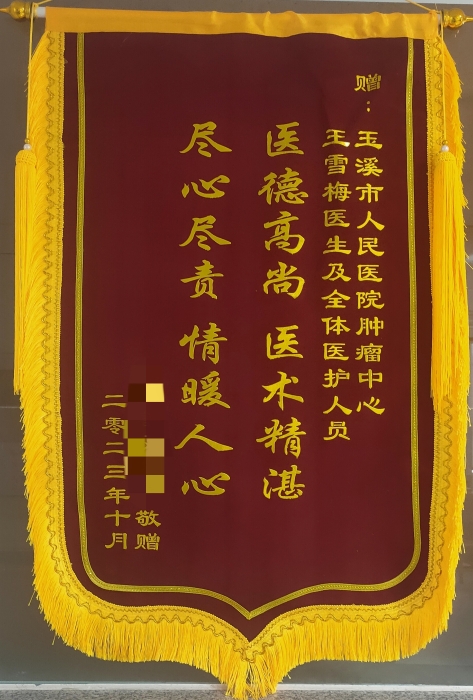 赠：
玉溪市人民医院肿瘤中心
王雪梅医生及全体医护人员
医德高尚 医术精湛
尽心尽责 情暖人心
敬赠
二零二三年十月